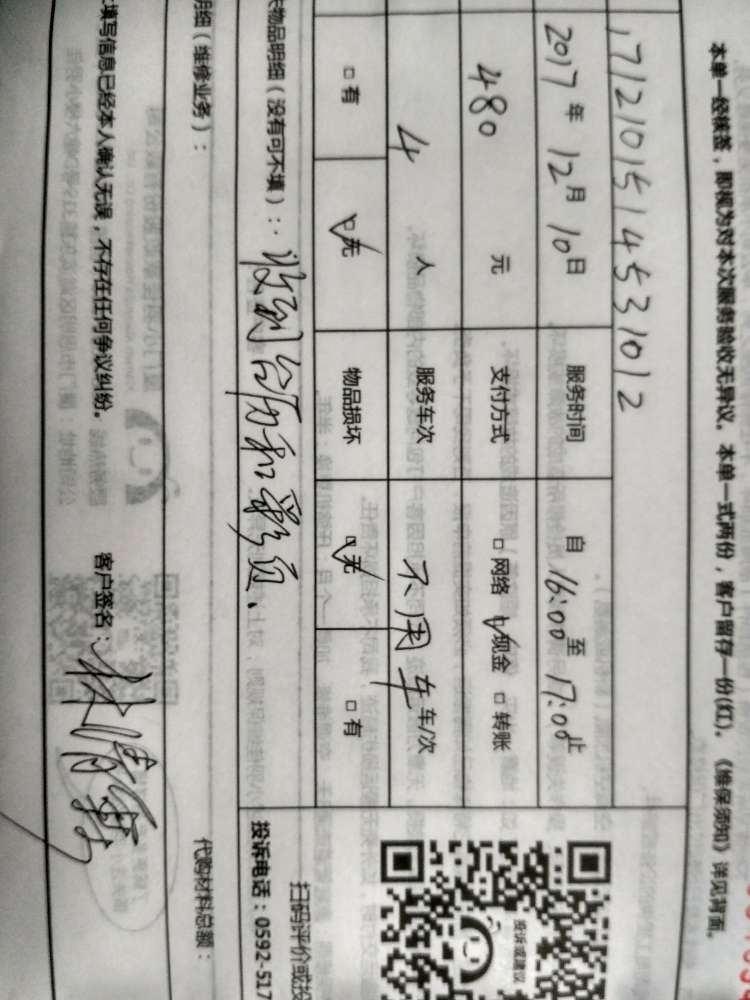 本单一经核签，即视为对本次服务验收无异议。本单一式两份，客户留存一份(红)。《维保须知》详见背面。
1712101514531012
2017年12月10日 服务时间 自16:00至17:00止
480元 支付方式 □网络 ☑现金 □转账
4人 服务车次 不用车 车/次
□有 ☑无 物品损坏 ☑无 □有
投诉或建议
扫码评价或投
投诉电话：0592-517
失物品明细（没有可不填）：收到台历和彩页、
明细（维修业务）：
代购材料总额：
填写信息已经本人确认无误，不存在任何争议纠纷。 客户签名：